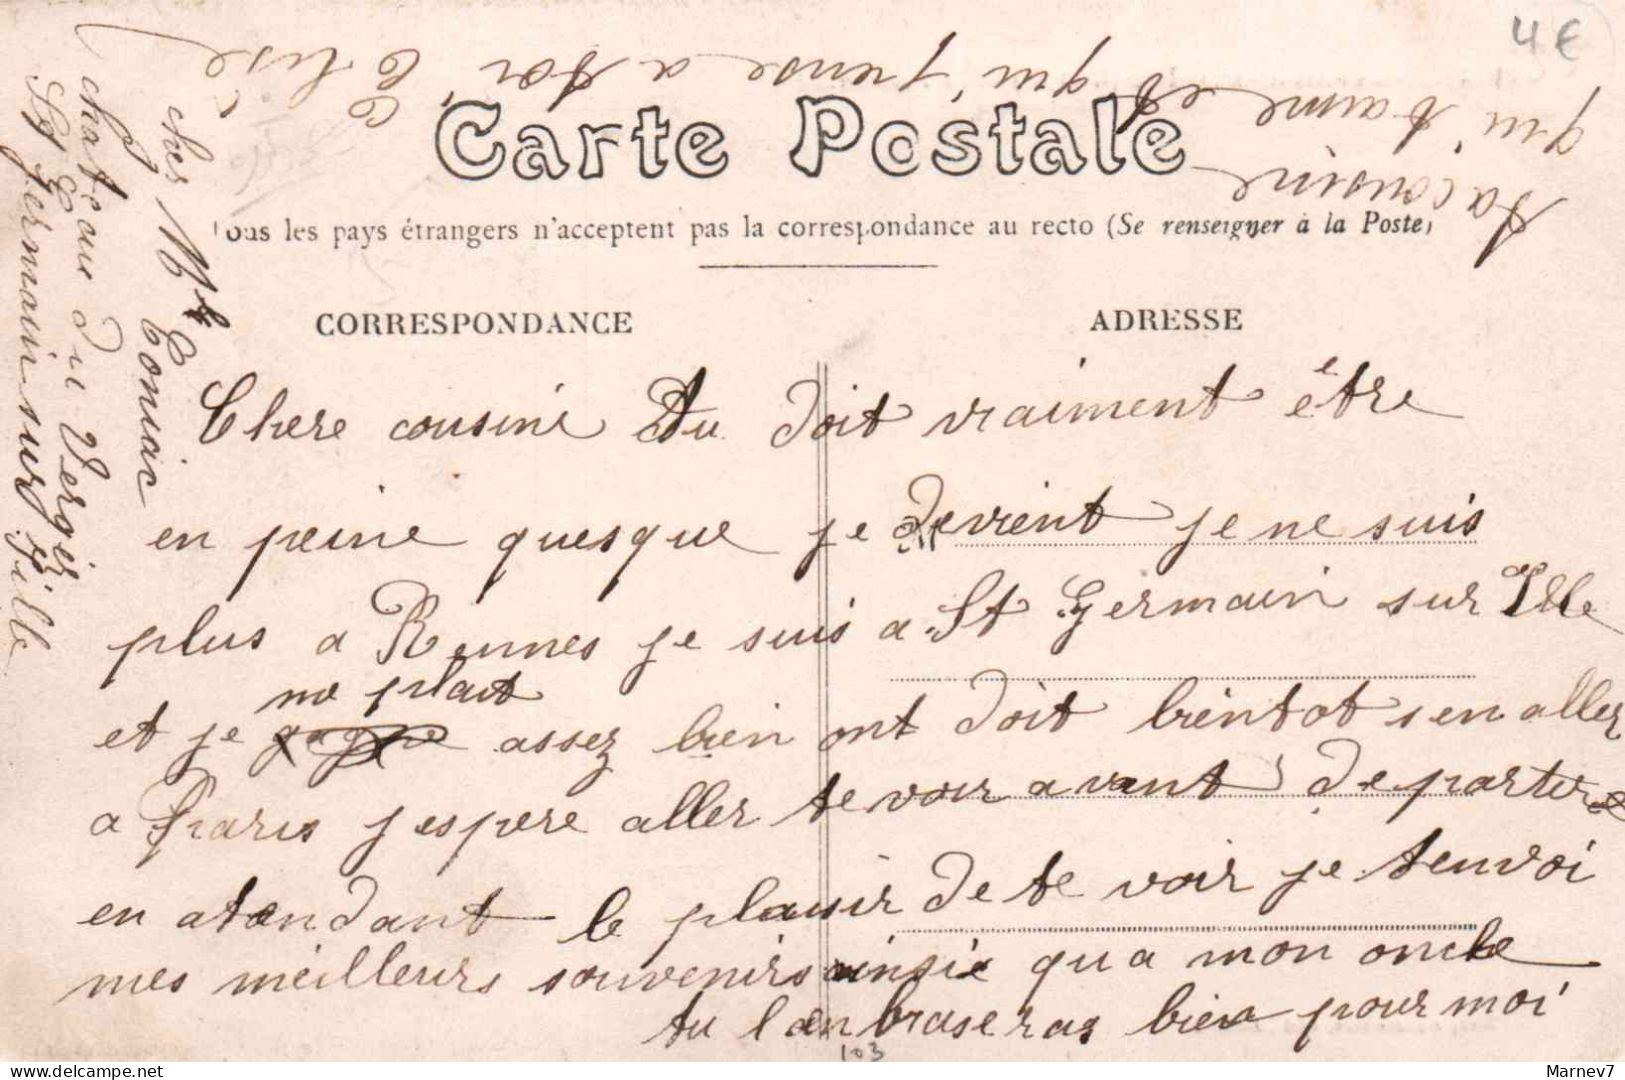 4€
Carte Postale
Tous les pays étrangers n'acceptent pas la correspondance au recto (Se renseigner à la Poste)
CORRESPONDANCE
ADRESSE
Chere cousine Tu doit vraiment être
en peine quesque je devient je ne suis
plus a Rennes je suis a St Germain sur Ille
et je me plait assez bien ont doit bientot s en aller
a Paris j espere aller te voir avant de partir
en atendant le plaisir de te voir je t envoi
mes meilleurs souvenirs ainsie qu a mon oncle
tu l anbraseras bien pour moi
ta cousine
qui t'aime et qui pense a toi
Elise
chez Mr
chateau du Verger
St Germain sur Ille
103
Marnev7